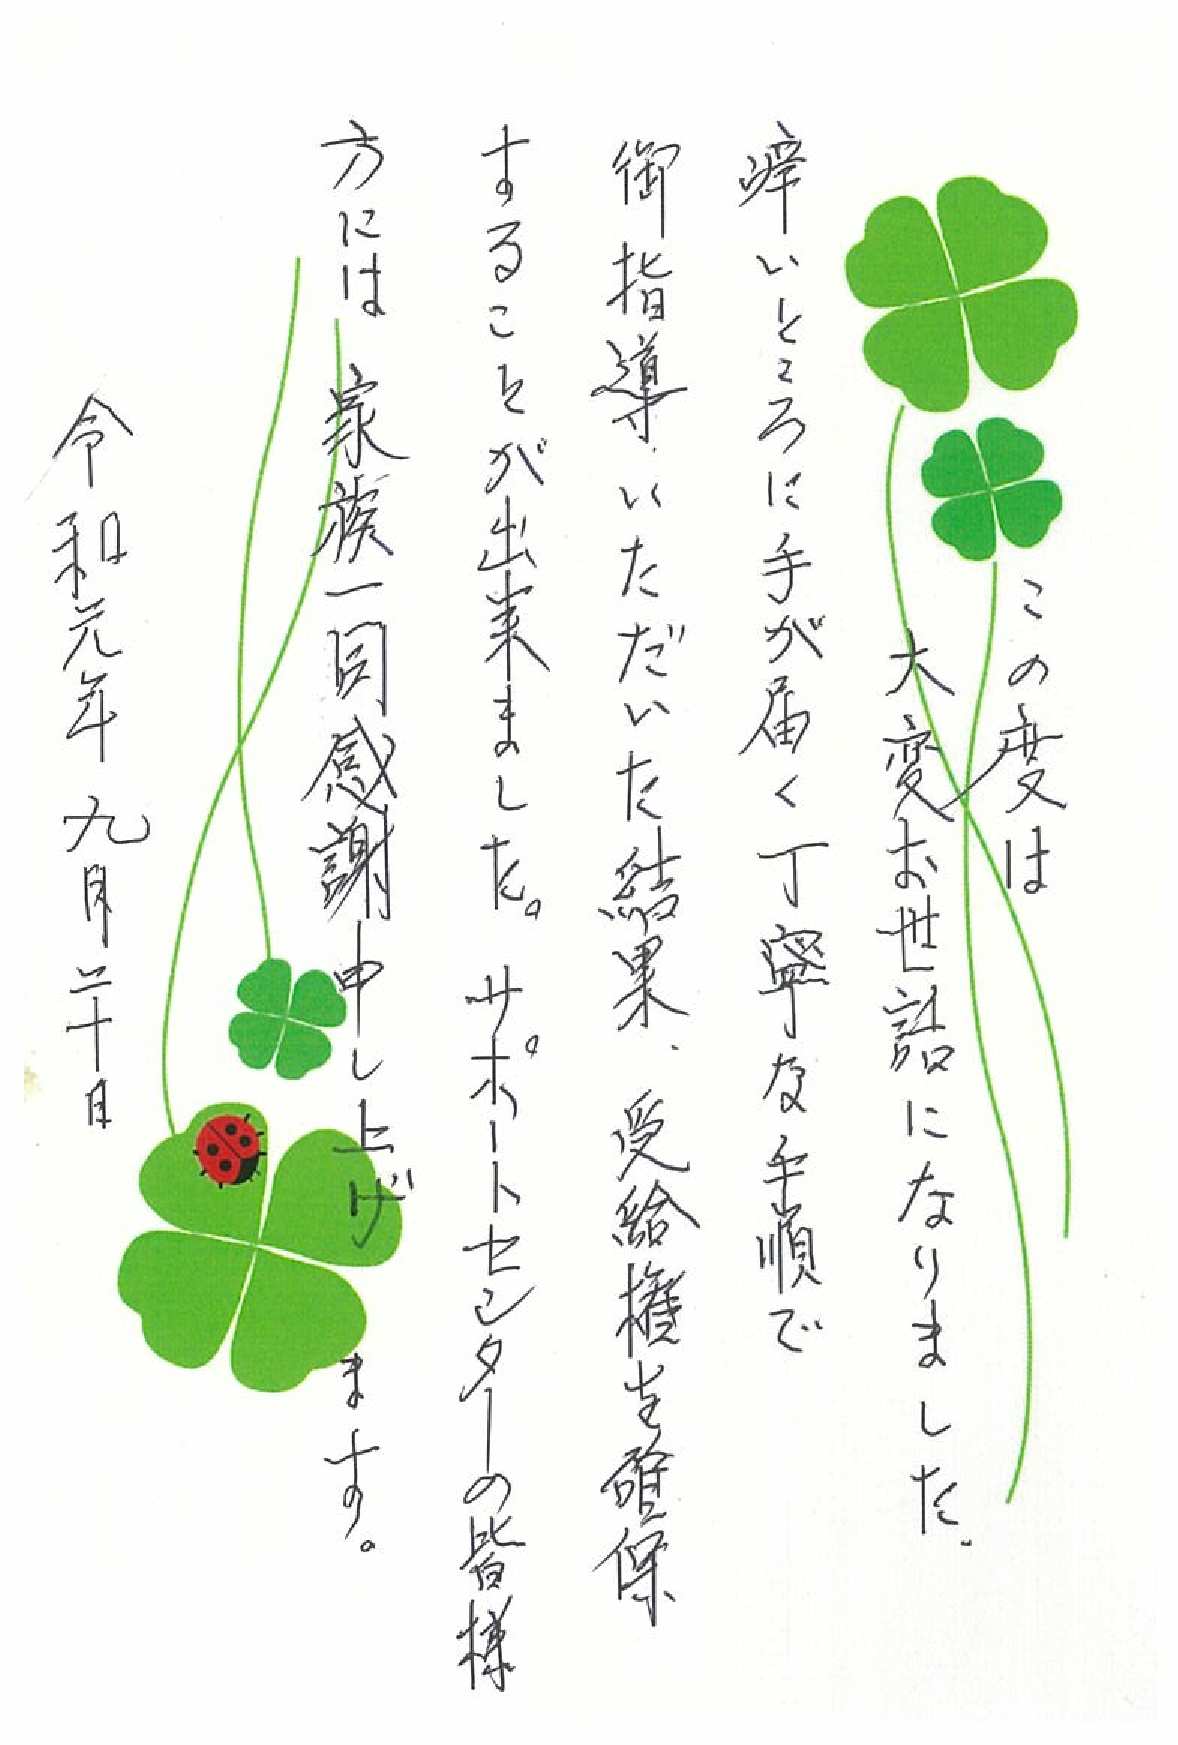 この度は
大変お世話になりました.
痒いところに手が届く丁寧な手順で
御指導いただいた結果、受給権を確保
することが出来ました。サポートセンターの皆様
方には家族一同感謝申し上げます。
令和元年九月二十日